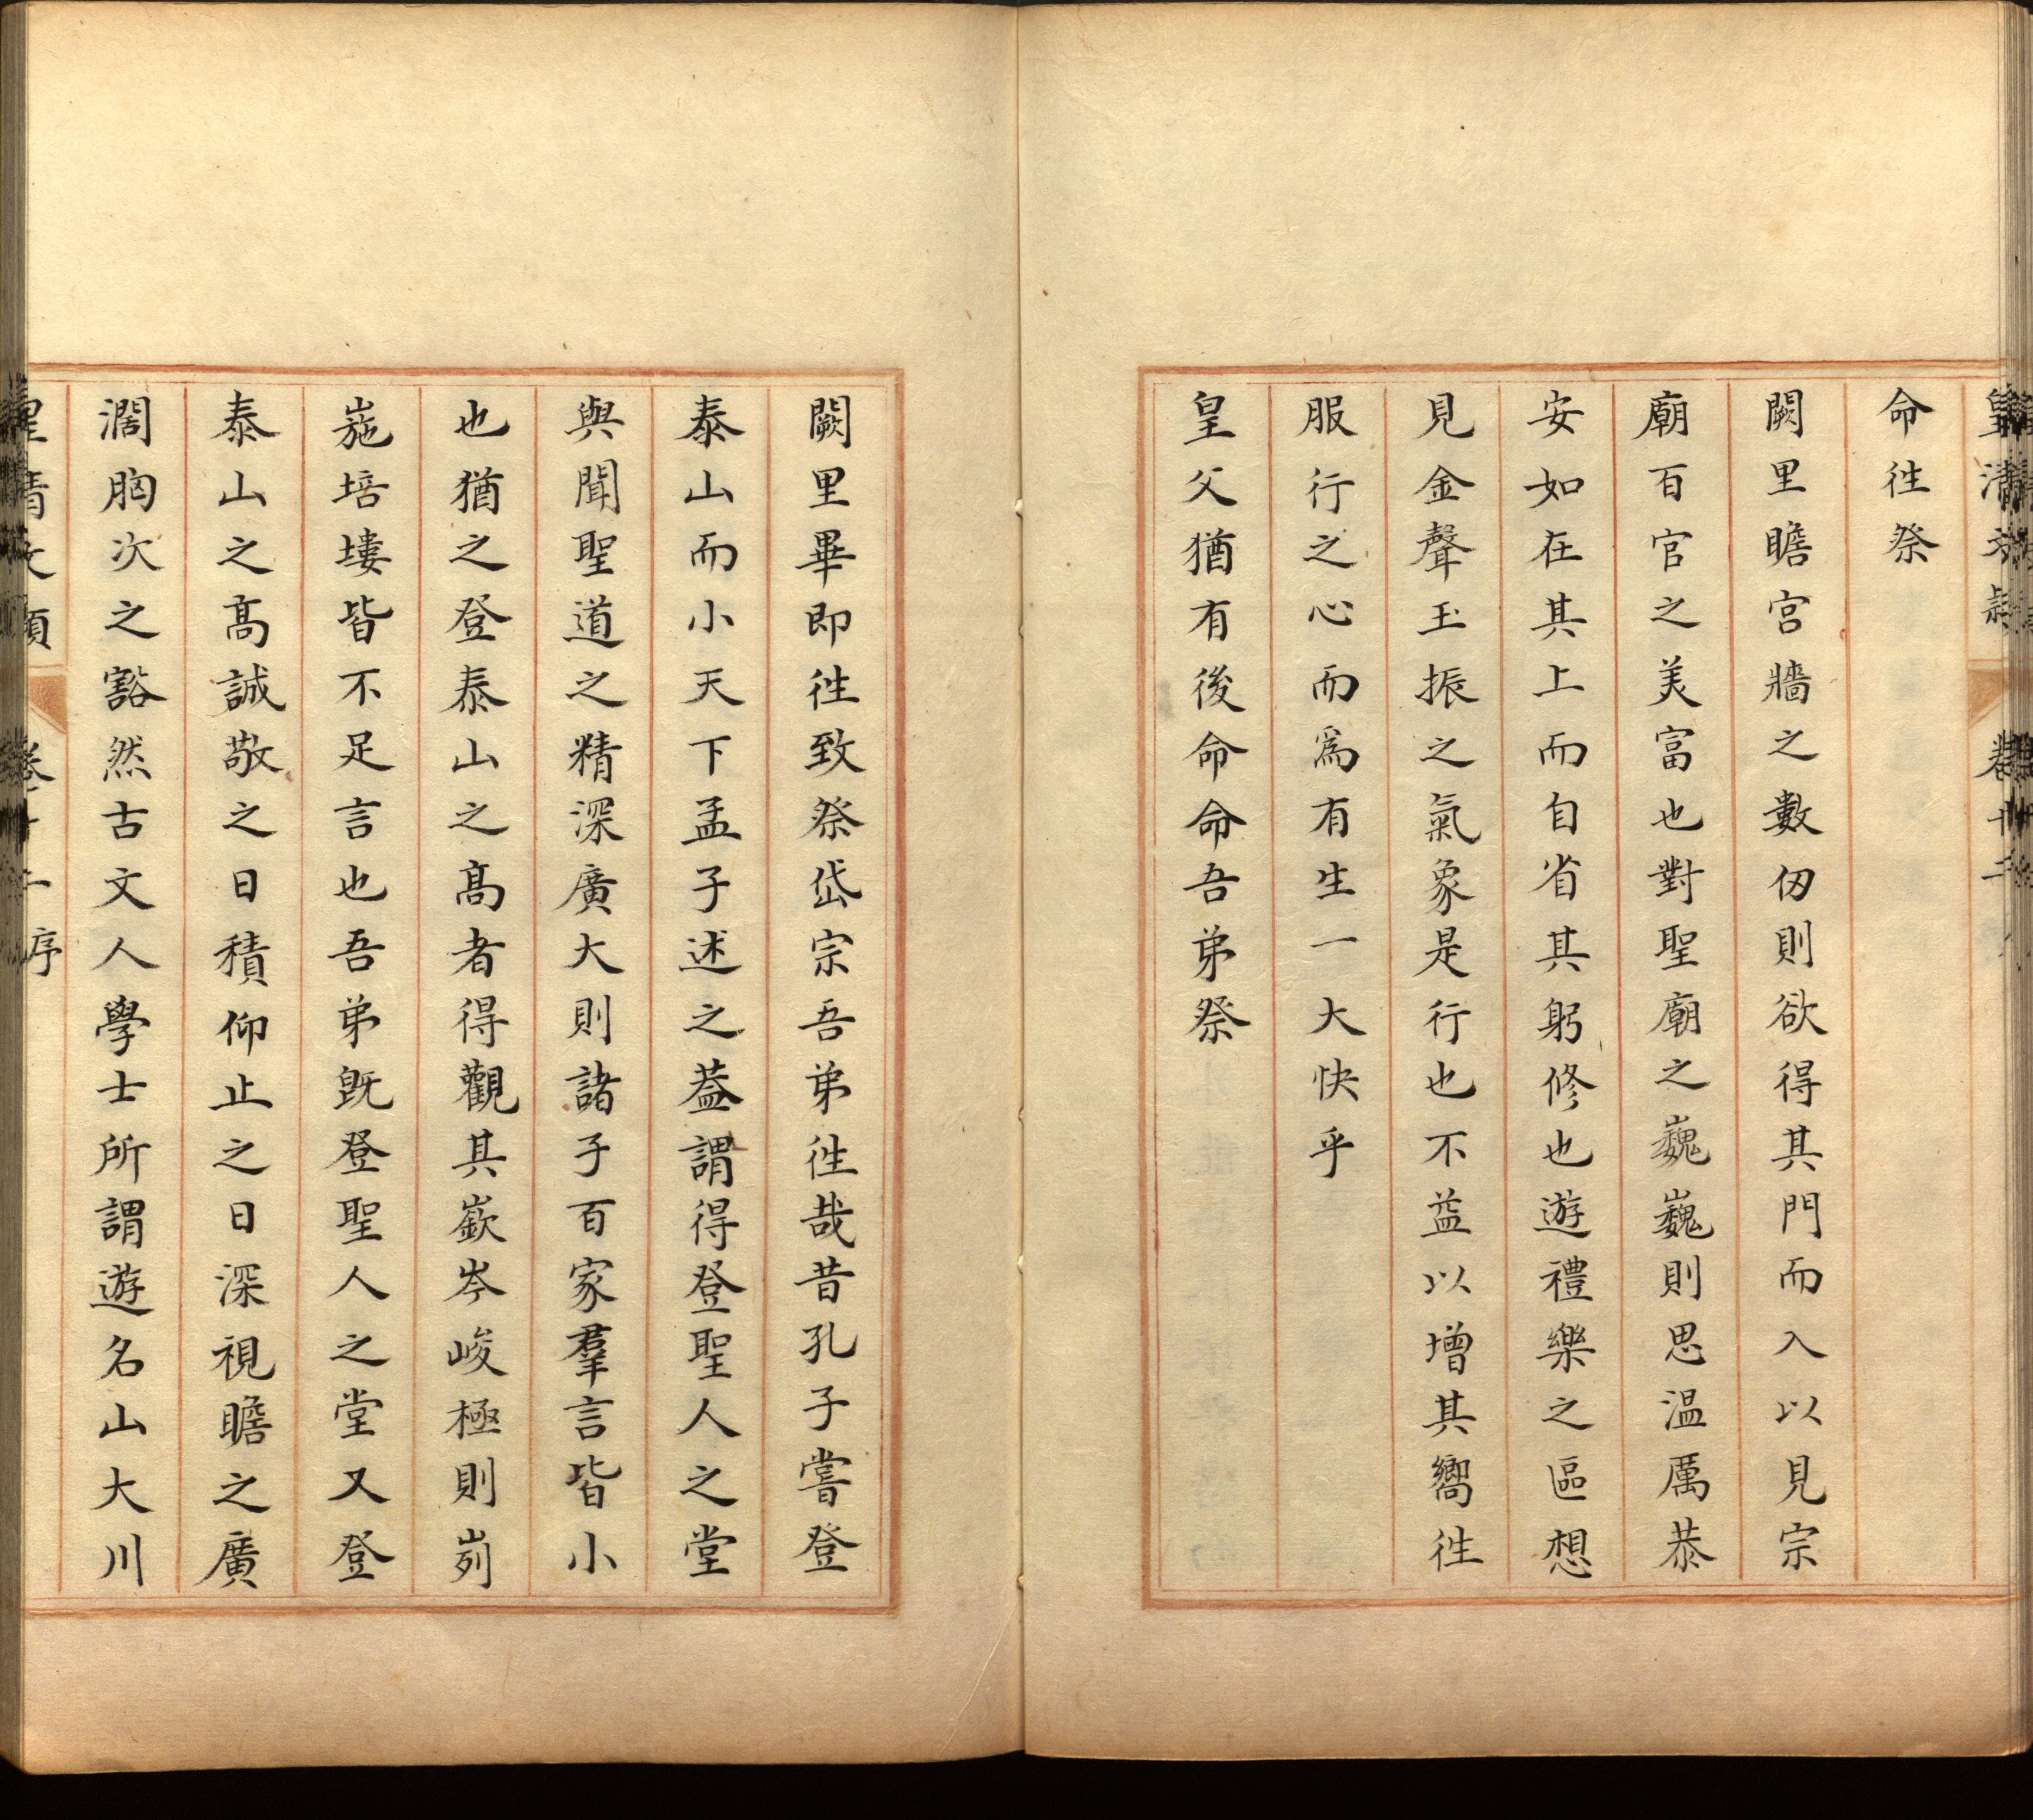 皇清文穎　卷十二
命徃祭
闕里瞻宫牆之數仞則欲得其門而入以見宗
廟百官之美富也對聖廟之巍巍則思温厲恭
安如在其上而自省其躬修也遊禮樂之區想
見金聲玉振之氣象是行也不益以增其嚮徃
服行之心而爲有生一大快乎
皇父猶有後命命吾弟祭
闕里畢即徃致祭岱宗吾弟徃哉昔孔子嘗登
泰山而小天下孟子述之葢謂得登聖人之堂
與聞聖道之精深廣大則諸子百家羣言皆小
也猶之登泰山之髙者得觀其嶔岑峻極則峛
崺培塿皆不足言也吾弟既登聖人之堂又登
泰山之髙誠敬之日積仰止之日深視瞻之廣
濶胸次之豁然古文人學士所謂遊名山大川
皇清文穎　卷十二　序